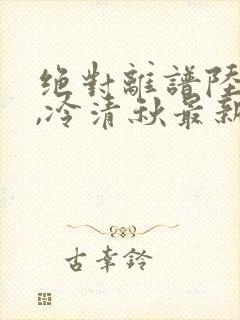 绝對離譜陸
,冷清秋最新
古幸鈴